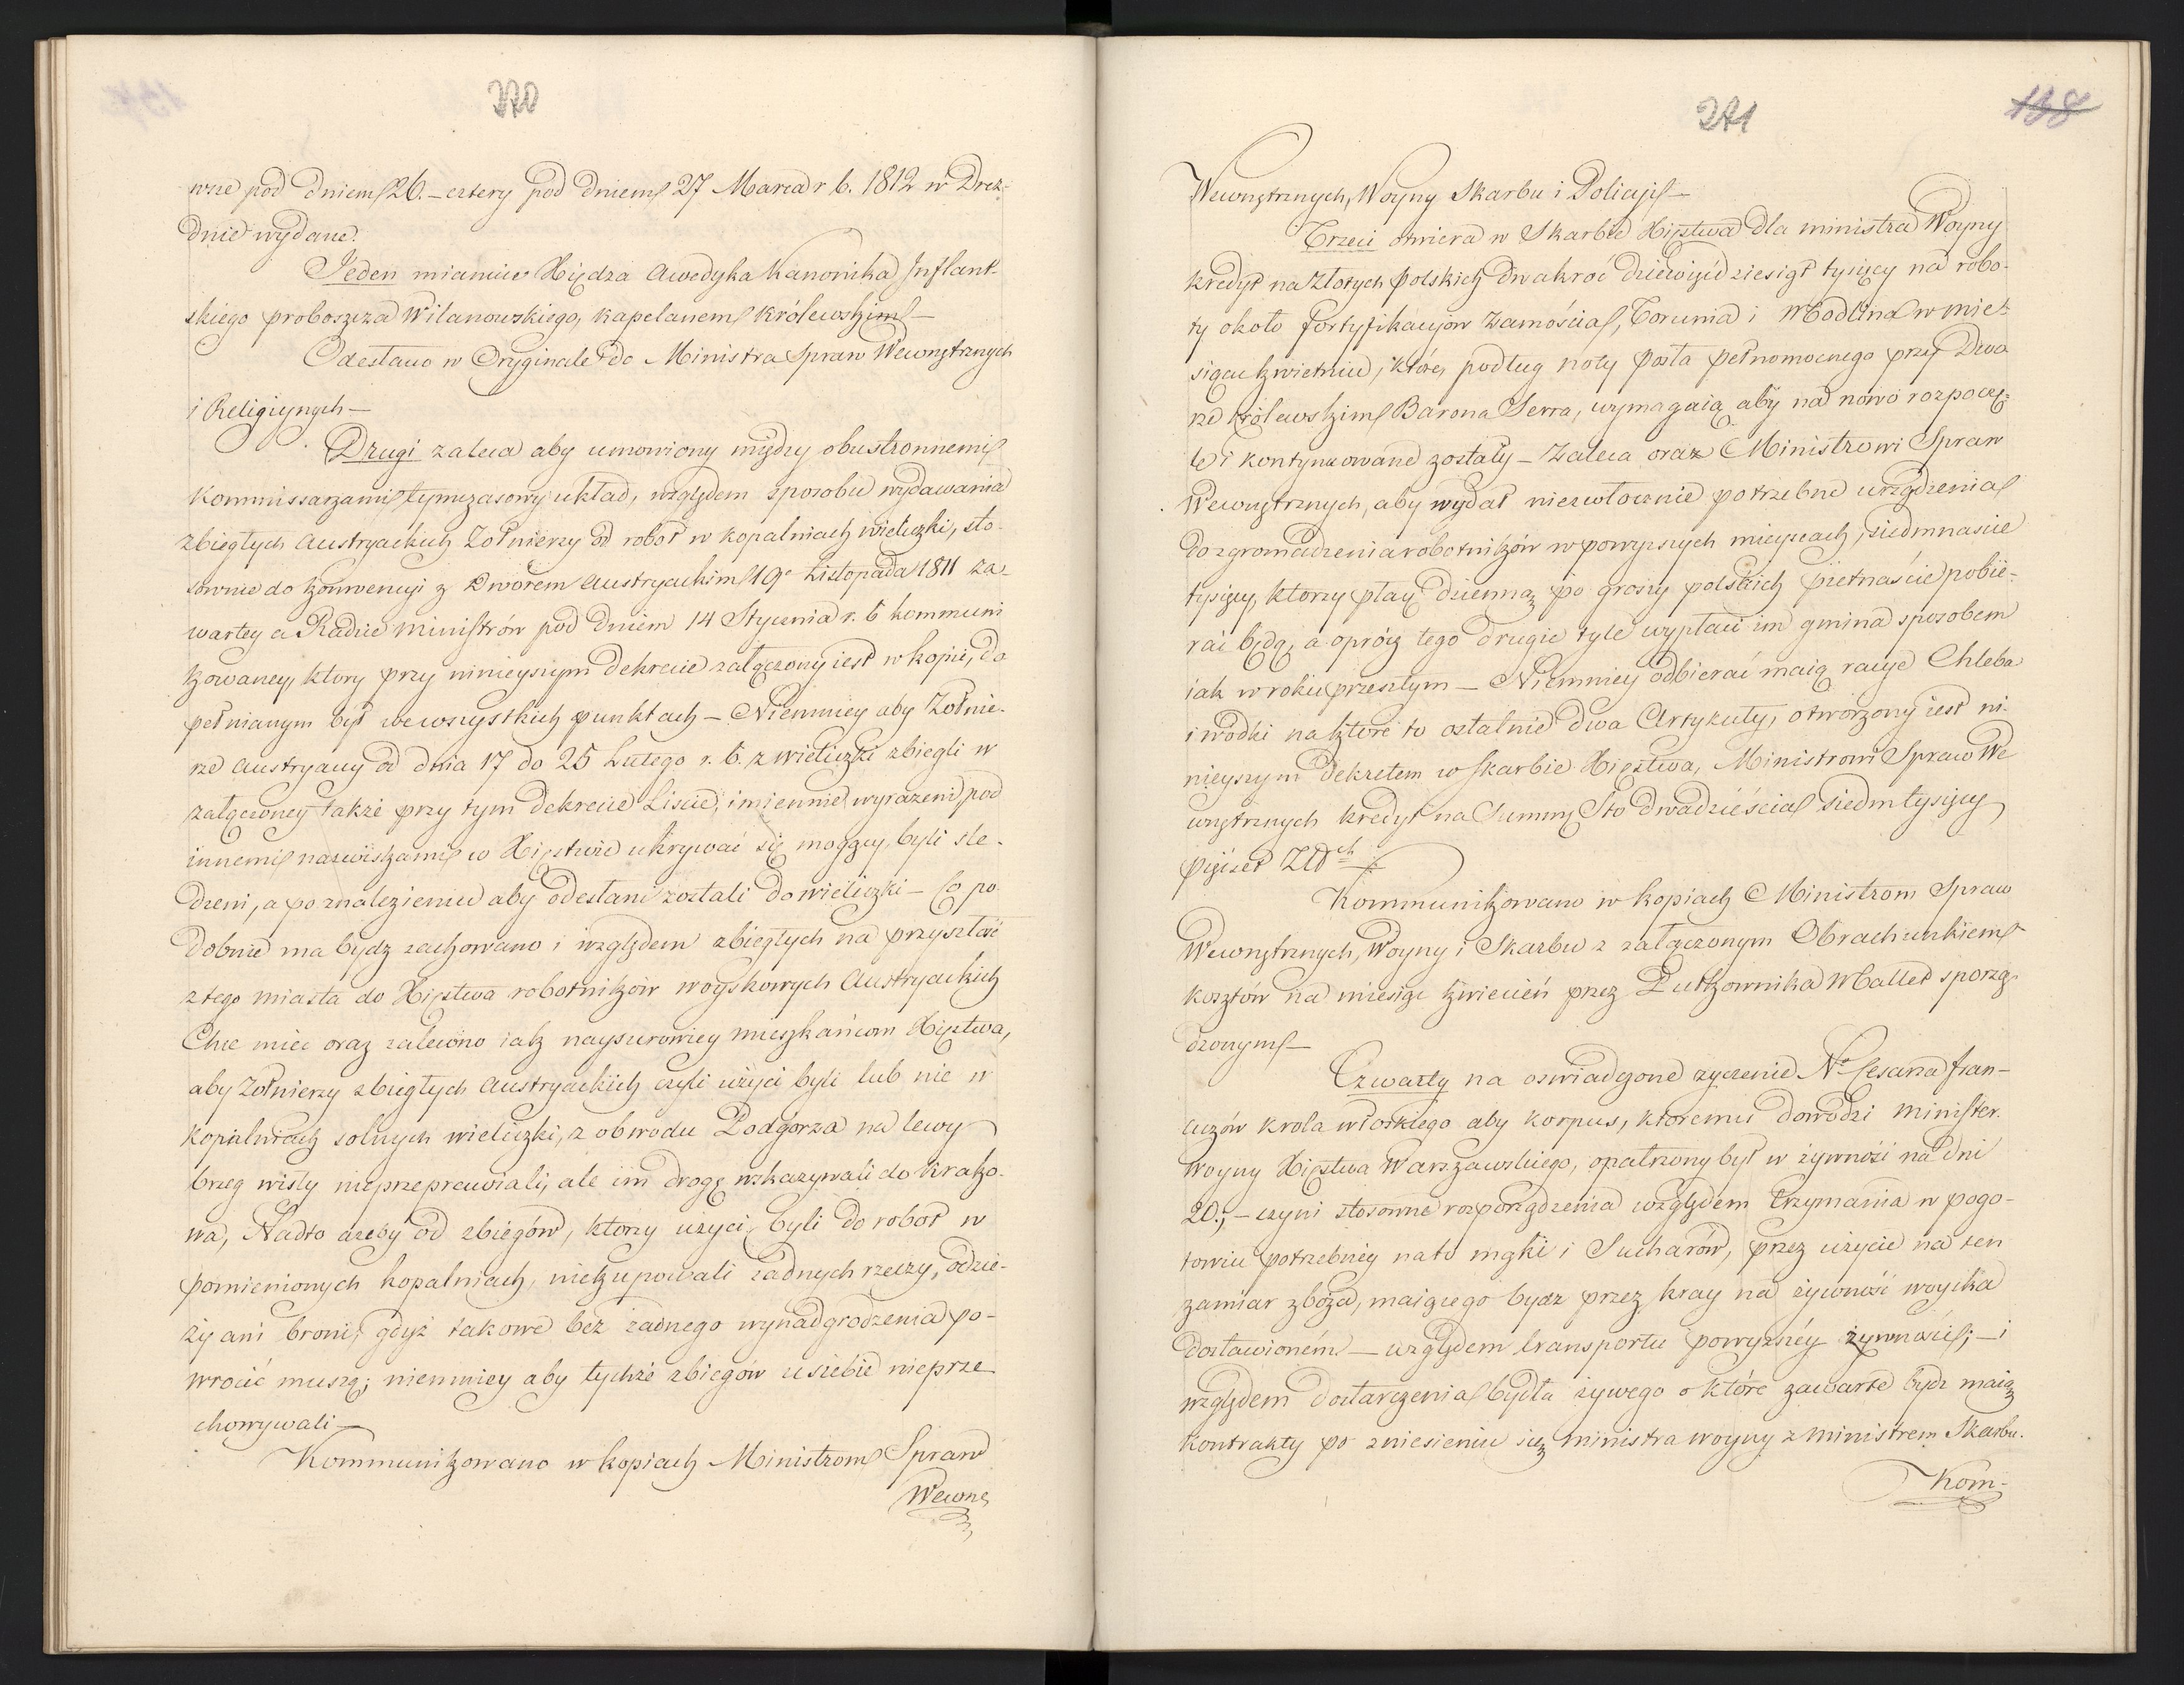 270
wsze pod dniem 26. – cztery pod dniem 27 Marca r. b. 1812 w Drez-
dnie wydane.
Jeden mianuie Xiędza Awedyka Kanonika Inflant-
skiego proboszcza Wilanowskiego, kapelanem Królewskim –
Odesłano w Oryginale do Ministra Spraw Wewnętrznych
i Religiynych –
Drugi zaleca aby umowiony między obustronnemi
Kommissarzami tymczasowy układ, względem sposobu wydawania
zbiegłych Austryackich Żołnierzy od robot w kopalniach wieliczki, sto-
sownie do konwencyi z Dworem Austryackim 19º Listopada 1811 za-
wartey a Radzie Ministrów pod dniem 14 Stycznia r. b. kommuni
kowaney, ktory przy ninieyszym dekrecie załączony iest w kopii, do
pełnianym był we wszystkich punktach – Niemniey aby Żołnie-
rze Austryaccy od dnia 17 do 25 Lutego r. b. z wieliczki zbiegli w
załączoney także przy tym dekrecie Liscie, imiennie wyrażeni pod
innemi nazwiskami w Xięstwie ukrywać się mogący, byli śle-
dzeni, a po znalezieniu aby odesłani zostali do wieliczki – Co po
dobnie ma bydz zachowano i względem zbiegłych na przyszłość
z tego miasta do Xięstwa robotników woyskowych Austryackich
Chce mieć oraz zalecono iak naysurowiey mieszkańcom Xięstwa,
aby Żołnierzy zbiegłych Austryackich czyli użyci byli lub nie w
kopalniach solnych wieliczki, z obwodu Podgórza na lewy
brzeg wisły nieprzeprawiali, ale im drogę wskazywali do Krako-
wa, Nadto ażeby od zbiegów, ktorzy użyci byli do robot w
pomienionych kopalniach, niekupowali żadnych rzeczy, odzie-
ży ani broni, gdyż takowe bez żadnego wynadgrodzenia po-
wrócić muszą; niemniey aby tychże zbiegów u siebie nieprze
chowywali –
Kommunikowano w kopiach Ministrom Spraw
Wewnę
271
138
Wewnętrznych, Woyny Skarbu i Policyi –
Trzeci otwiera w Skarbie Xięstwa dla ministra Woyny
kredyt na Złotych polskich dwakroć dziewięćdziesiąt tysięcy na robo-
ty około fortyfikacyow Zamościa, Torunia i Modlina w mie-
siącu kwietniu, które podług noty posła pełnomocnego przy Dwo
rze królewskim Barona Serra, wymagaią aby na nowo rozpoczę-
te i kontynuowane zostały – Zaleca oraz Ministrowi Spraw
Wewnętrznych, aby wydał niezwłocznie potrzebne urządzenia
do zgromadzenia robotników w powyższych mieyscach, siedmnaście
tysięcy, ktorzy płacę dzienną po groszy polskich pietnaście pobie-
rać będą, a oprócz tego drugie tyle wypłaci im gmina sposobem
iak w roku przeszłym – Niemniey odbierać maią racye Chleba
i wódki na które to ostatnie dwa Artykuły, otworzony iest ni-
nieyszym dekretem w skarbie Xięstwa, Ministrowi Spraw We
wnętrznych kredyt na Summę Sto dwadzieścia siedm tysięcy
pięćset Złłch
Kommunikowano w kopiach Ministrom Spraw
Wewnętrznych, Woyny i Skarbu z załączonym Obrachunkiem
kosztów na miesiąc kwiecień przez Pułkownika Mallet sporzą-
dzonym –
Czwarty na oświadczone życzenie Nº Cesarza fran-
cuzów krola włoskiego aby korpus, ktoremu dowodzi minister
woyny Xięstwa Warszawskiego, opatrzony był w żywność na dni
20., – czyni stosowne rozporządzenia względem trzymania w pogo-
towiu potrzebnéy na to mąki i Sucharów, przez użycie na ten
zamiar zboża, maiącego bydz przez kray na żywność woyska
dostawioném – względem transportu powyższéy żywności; – i
względem dostarczenia bydła żywego o które zawarte bydz maią
kontrakty po zniesieniu się ministra woyny z ministrem Skarbu.
Kom-